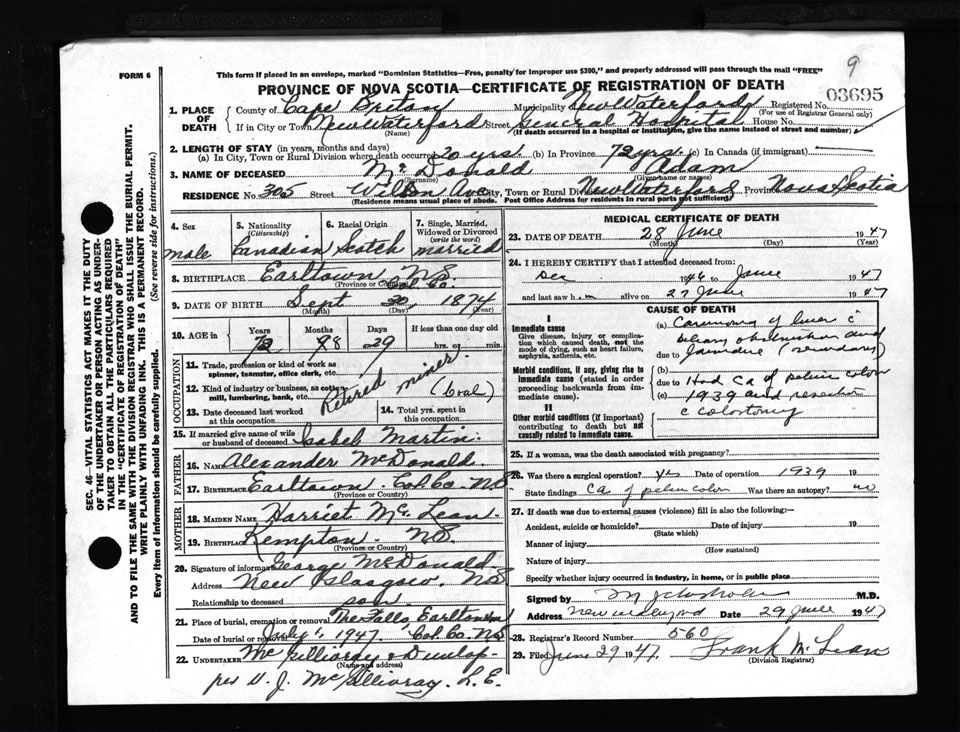 9
FORM 6
This form if placed in an envelope, marked "Dominion Statistics—Free, penalty for improper use $300," and properly addressed will pass through the mail "FREE"
PROVINCE OF NOVA SCOTIA—CERTIFICATE OF REGISTRATION OF DEATH
03695
1. PLACE OF DEATH
County of Cape Breton Municipality New Waterford Registered No.
(For use of Registrar General only)
If in City or Town New Waterford Street General Hospital House No.
(Name) (If death occurred in a hospital or institution, give the name instead of street and number)
2. LENGTH OF STAY (in years, months and days)
(a) In City, Town or Rural Division where death occurred 20 yrs (b) In Province 72 yrs (c) In Canada (if immigrant)
3. NAME OF DECEASED McDonald Adam
(Surname) (Given name or names)
RESIDENCE No. 305 Street Wilson Ave City, Town or Rural Division New Waterford Province Nova Scotia
(Residence means usual place of abode. Post Office Address for residents in rural parts not sufficient)
4. Sex
male
5. Nationality (Citizenship)
Canadian
6. Racial Origin
Scotch
7. Single, Married, Widowed or Divorced (write the word)
married
8. BIRTHPLACE Earltown NS
(Province or Country) Col. Co.
9. DATE OF BIRTH Sept 30, 1874
(Month) (Day) (Year)
10. AGE in
Years Months Days If less than one day old
72 8 29 hrs. or min.
OCCUPATION
11. Trade, profession or kind of work as spinner, teamster, office clerk, etc.
Retired miner
12. Kind of industry or business, as cotton mill, lumbering, bank, etc.
(Coal)
13. Date deceased last worked at this occupation
14. Total yrs. spent in this occupation
15. If married give name of wife or husband of deceased Isabel Martin
FATHER
16. NAME Alexander McDonald
17. BIRTHPLACE Earltown Col. Co. NS
(Province or Country)
MOTHER
18. MAIDEN NAME Harriet McLean
19. BIRTHPLACE Kempton NS
(Province or Country)
20. Signature of informant George McDonald
Address New Glasgow, NS
Relationship to deceased son
21. Place of burial, cremation or removal The Falls, Earltown
Date of burial or removal July 1, 1947. Col. Co. NS
22. UNDERTAKER McGillivray & Dunlop
(Name and address)
per H. J. McGillivray. L.E.
MEDICAL CERTIFICATE OF DEATH
23. DATE OF DEATH 28 June 1947
(Month) (Day) (Year)
24. I HEREBY CERTIFY that I attended deceased from:
Dec 1946 to June 1947
and last saw him alive on 27 June 1947
CAUSE OF DEATH
I
Immediate cause
Give disease, injury or complication which caused death, not the mode of dying, such as heart failure, asphyxia, asthenia, etc.
(a) Carcinoma of liver c
biliary obstruction and
due to jaundice (secondary)
Morbid conditions, if any, giving rise to immediate cause (stated in order proceeding backwards from immediate cause).
(b)
due to Had Ca of pelvic colon
(c) 1939 and resection
c colostomy
II
Other morbid conditions (if important) contributing to death but not causally related to immediate cause.
25. If a woman, was the death associated with pregnancy?
26. Was there a surgical operation? yes Date of operation 1939 19
State findings Ca of pelvic colon Was there an autopsy? no
27. If death was due to external causes (violence) fill in also the following:
Accident, suicide or homicide? Date of injury 19
(State which)
Manner of injury
(How sustained)
Nature of injury
Specify whether injury occurred in industry, in home, or in public place
Signed by M.D.
Address New Waterford Date 29 June 1947
28. Registrar's Record Number 560
29. Filed June 29 1947 Frank McLean
(Division Registrar)
SEC. 46—VITAL STATISTICS ACT MAKES IT THE DUTY
OF THE UNDERTAKER OR PERSON ACTING AS UNDERTAKER TO OBTAIN ALL THE PARTICULARS REQUIRED
IN THE "CERTIFICATE OF REGISTRATION OF DEATH"
AND TO FILE THE SAME WITH THE DIVISION REGISTRAR WHO SHALL ISSUE THE BURIAL PERMIT.
WRITE PLAINLY WITH UNFADING INK. THIS IS A PERMANENT RECORD.
Every item of information should be carefully supplied. (See reverse side for instructions.)